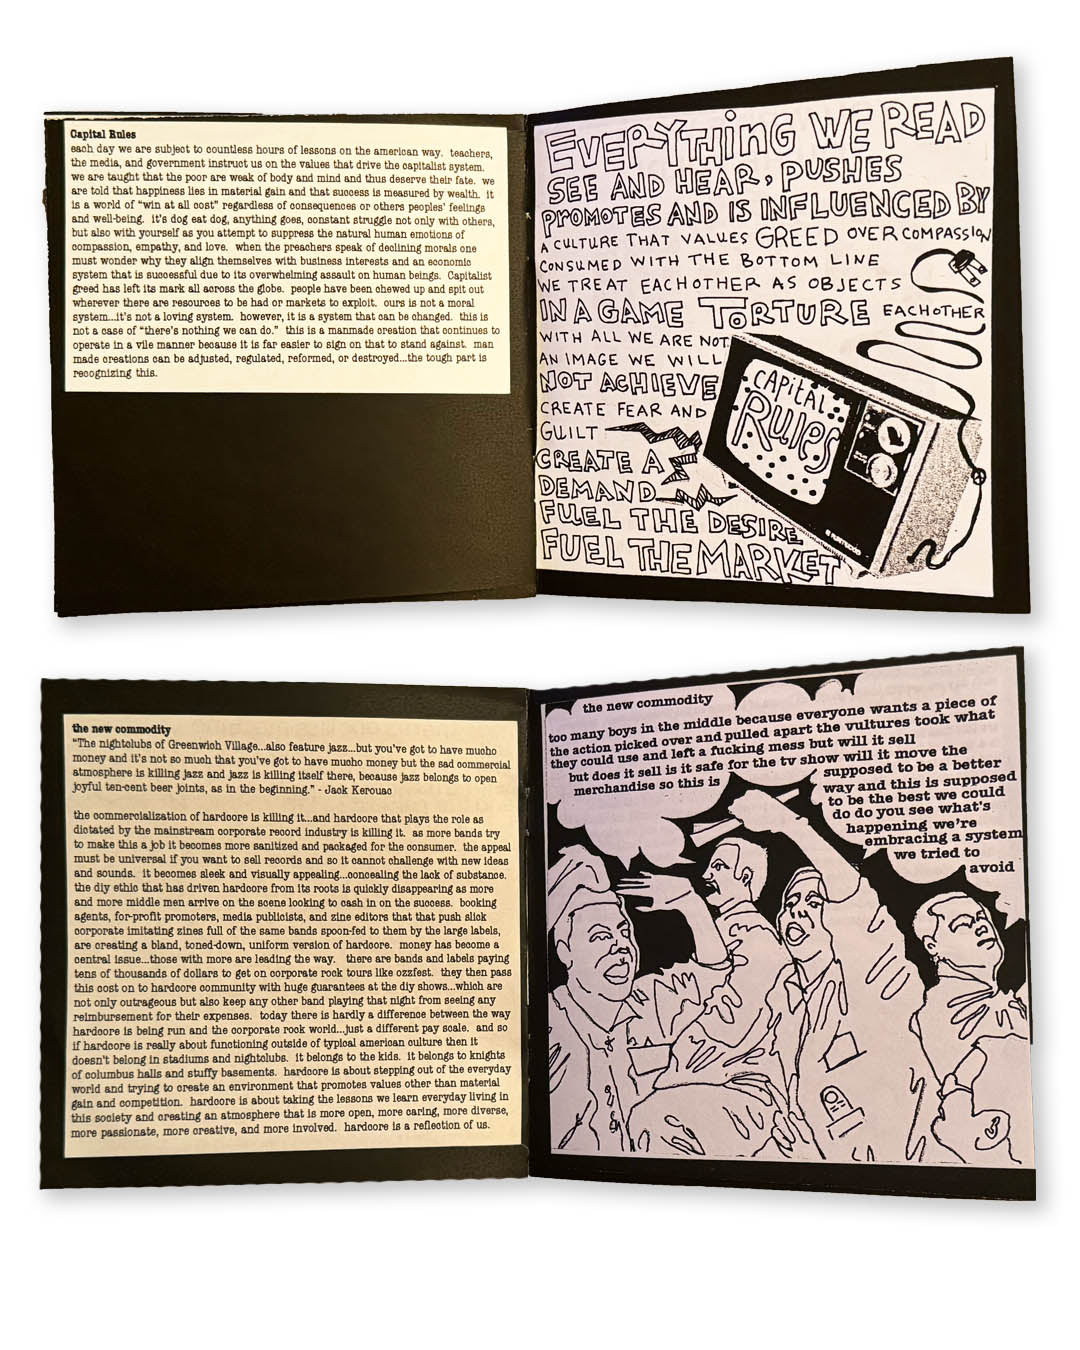 Capital Rules
each day we are subject to countless hours of lessons on the american way. teachers,
the media, and government instruct us on the values that drive the capitalist system.
we are taught that the poor are weak of body and mind and thus deserve their fate. we
are told that happiness lies in material gain and that success is measured by wealth. it
is a world of "win at all cost" regardless of consequences or others peoples' feelings
and well-being. it's dog eat dog, anything goes, constant struggle not only with others,
but also with yourself as you attempt to suppress the natural human emotions of
compassion, empathy, and love. when the preachers speak of declining morals one
must wonder why they align themselves with business interests and an economic
system that is successful due to its overwhelming assault on human beings. Capitalist
greed has left its mark all across the globe. people have been chewed up and spit out
wherever there are resources to be had or markets to exploit. ours is not a moral
system...it's not a loving system. however, it is a system that can be changed. this is
not a case of "there's nothing we can do." this is a manmade creation that continues to
operate in a vile manner because it is far easier to sign on that to stand against. man
made creations can be adjusted, regulated, reformed, or destroyed...the tough part is
recognizing this.
EVERYTHING WE READ
SEE AND HEAR, PUSHES
PROMOTES AND IS INFLUENCED BY
A CULTURE THAT VALUES GREED OVER COMPASSION
CONSUMED WITH THE BOTTOM LINE
WE TREAT EACHOTHER AS OBJECTS
IN A GAME TORTURE EACHOTHER
WITH ALL WE ARE NOT
AN IMAGE WE WILL
NOT ACHIEVE
CREATE FEAR AND
GUILT
CREATE A
DEMAND
FUEL THE DESIRE
FUEL THE MARKET
CAPITAL
RULES
the new commodity
"The nightclubs of Greenwich Village...also feature jazz...but you've got to have mucho
money and it's not so much that you've got to have mucho money but the sad commercial
atmosphere is killing jazz and jazz is killing itself there, because jazz belongs to open
joyful ten-cent beer joints, as in the beginning." - Jack Kerouac
the commercialization of hardcore is killing it...and hardcore that plays the role as
dictated by the mainstream corporate record industry is killing it. as more bands try
to make this a job it becomes more sanitized and packaged for the consumer. the appeal
must be universal if you want to sell records and so it cannot challenge with new ideas
and sounds. it becomes sleek and visually appealing...concealing the lack of substance.
the diy ethic that has driven hardcore from its roots is quickly disappearing as more
and more middle men arrive on the scene looking to cash in on the success. booking
agents, for-profit promoters, media publicists, and zine editors that that push slick
corporate imitating zines full of the same bands spoon-fed to them by the large labels,
are creating a bland, toned-down, uniform version of hardcore. money has become a
central issue...those with more are leading the way. there are bands and labels paying
tens of thousands of dollars to get on corporate rock tours like ozzfest. they then pass
this cost on to hardcore community with huge guarantees at the diy shows...which are
not only outrageous but also keep any other band playing that night from seeing any
reimbursement for their expenses. today there is hardly a difference between the way
hardcore is being run and the corporate rock world...just a different pay scale. and so
if hardcore is really about functioning outside of typical american culture then it
doesn't belong in stadiums and nightclubs. it belongs to the kids. it belongs to knights
of columbus halls and stuffy basements. hardcore is about stepping out of the everyday
world and trying to create an environment that promotes values other than material
gain and competition. hardcore is about taking the lessons we learn everyday living in
this society and creating an atmosphere that is more open, more caring, more diverse,
more passionate, more creative, and more involved. hardcore is a reflection of us.
the new commodity
too many boys in the middle because everyone wants a piece of
the action picked over and pulled apart the vultures took what
they could use and left a fucking mess but will it sell
but does it sell is it safe for the tv show will it move the
merchandise so this is
supposed to be a better
way and this is supposed
to be the best we could
do do you see what's
happening we're
embracing a system
we tried to
avoid